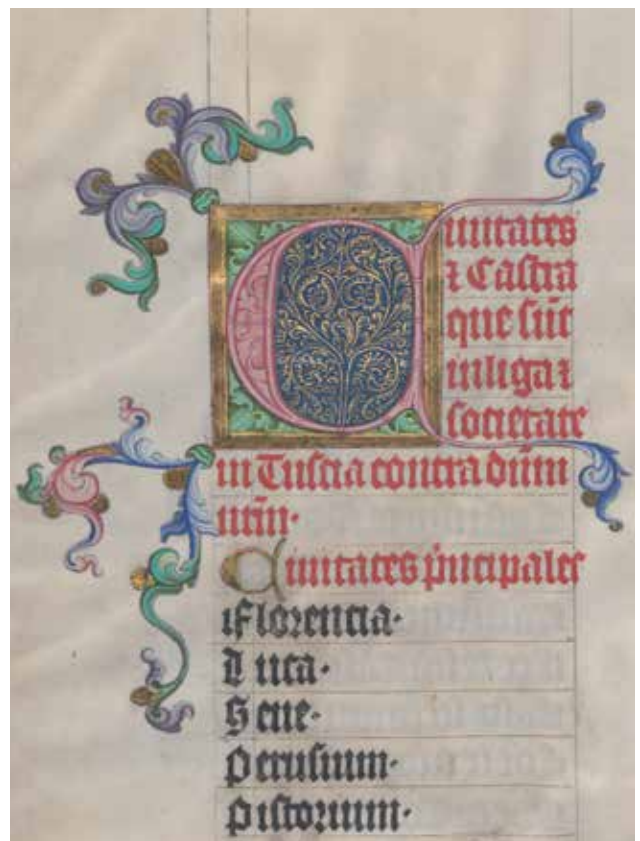 Ciuitates
⁊ Castra
que sūt
in liga ⁊
societate
in Tuscia contra dūm
nr̄m·
Ciuitates p̄ncipales
Florencia·
Luca·
Sene·
Perusium·
Pistorium·